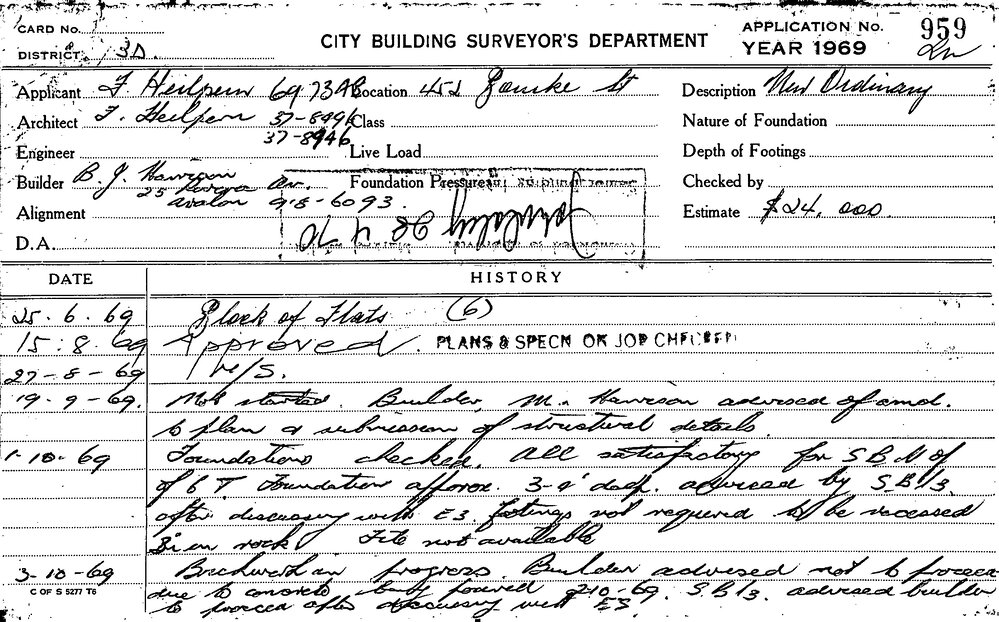 CARD No.
DISTRICT 3D.
CITY BUILDING SURVEYOR'S DEPARTMENT
APPLICATION No. 959
YEAR 1969
Applicant F. Heilpern 69 73 Location 452 Bourke St
Description New Ordinary
Architect F. Heilpern 37-8496 Class
37-8946
Nature of Foundation
Engineer
Live Load
Depth of Footings
Builder B. J. Harrison
25 Av.
Avalon 918-6093.
Foundation Pressure
Checked by
Alignment
Estimate $24,000.
D.A.
28 4 70
DATE
HISTORY
25.6.69 Block of Flats (6)
15.8.69 Approved. PLANS & SPECN ON JOB CHECKED
27-8-69
19-9-69. Not started. Builder, Mr. Harrison advised of amd.
to plan & submission of structural details.
1-10-69 Foundations checked. All satisfactory for S.B.
of 6 T. Foundation approx. 3-9' deep. advised by S.B./3.
after discussing with E3. footings not required to be recessed
in rock. File not available
3-10-69 Brickwork in progress. Builder advised not to proceed
due to concrete being poured 2-10-69. S.B./3. advised builder
to proceed after discussing with E3.
C OF S 5277 T6